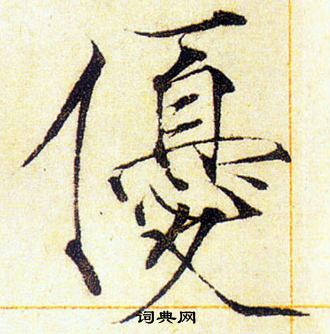 優
词典网